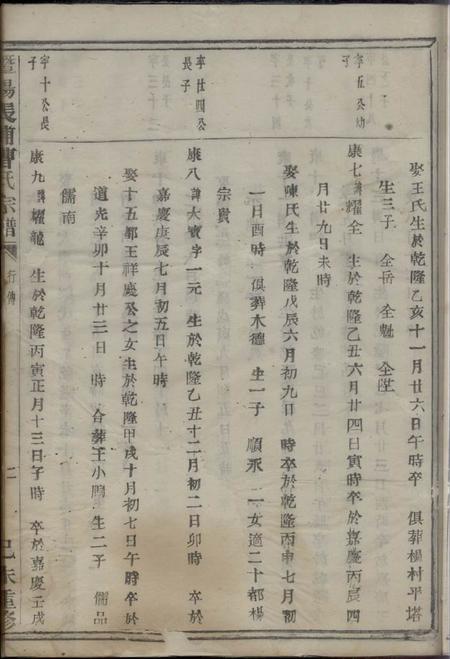 娶王氏生於乾隆乙亥十一月廿六日午時卒 俱葬楊村平塔
生三子 全岳 全魁 全陞
字伍公幼子
康七諱耀全 生於乾隆乙丑六月廿四日寅時卒於嘉慶丙辰四
月廿九日未時
娶陳氏生於乾隆戊辰六月初九日 時卒於乾隆丙申七月初
一日酉時 俱葬木德 生一子 順永 一女適二十都楊
宗貴
字廿四公長子
康八諱大寶字一元 生於乾隆乙丑十二月初二日卯時 卒於
嘉慶庚辰七月初五日午時
娶十五都王祥慶公之女生於乾隆甲戌十月初七日午時卒於
道光辛卯十月廿三日 時 合葬王小塢 生二子 儒品
儒南
字十公長子
康九諱耀龍 生於乾隆丙寅正月十三日子時 卒於嘉慶壬戌
暨陽長浦曹氏宗譜 行傳 己未重修